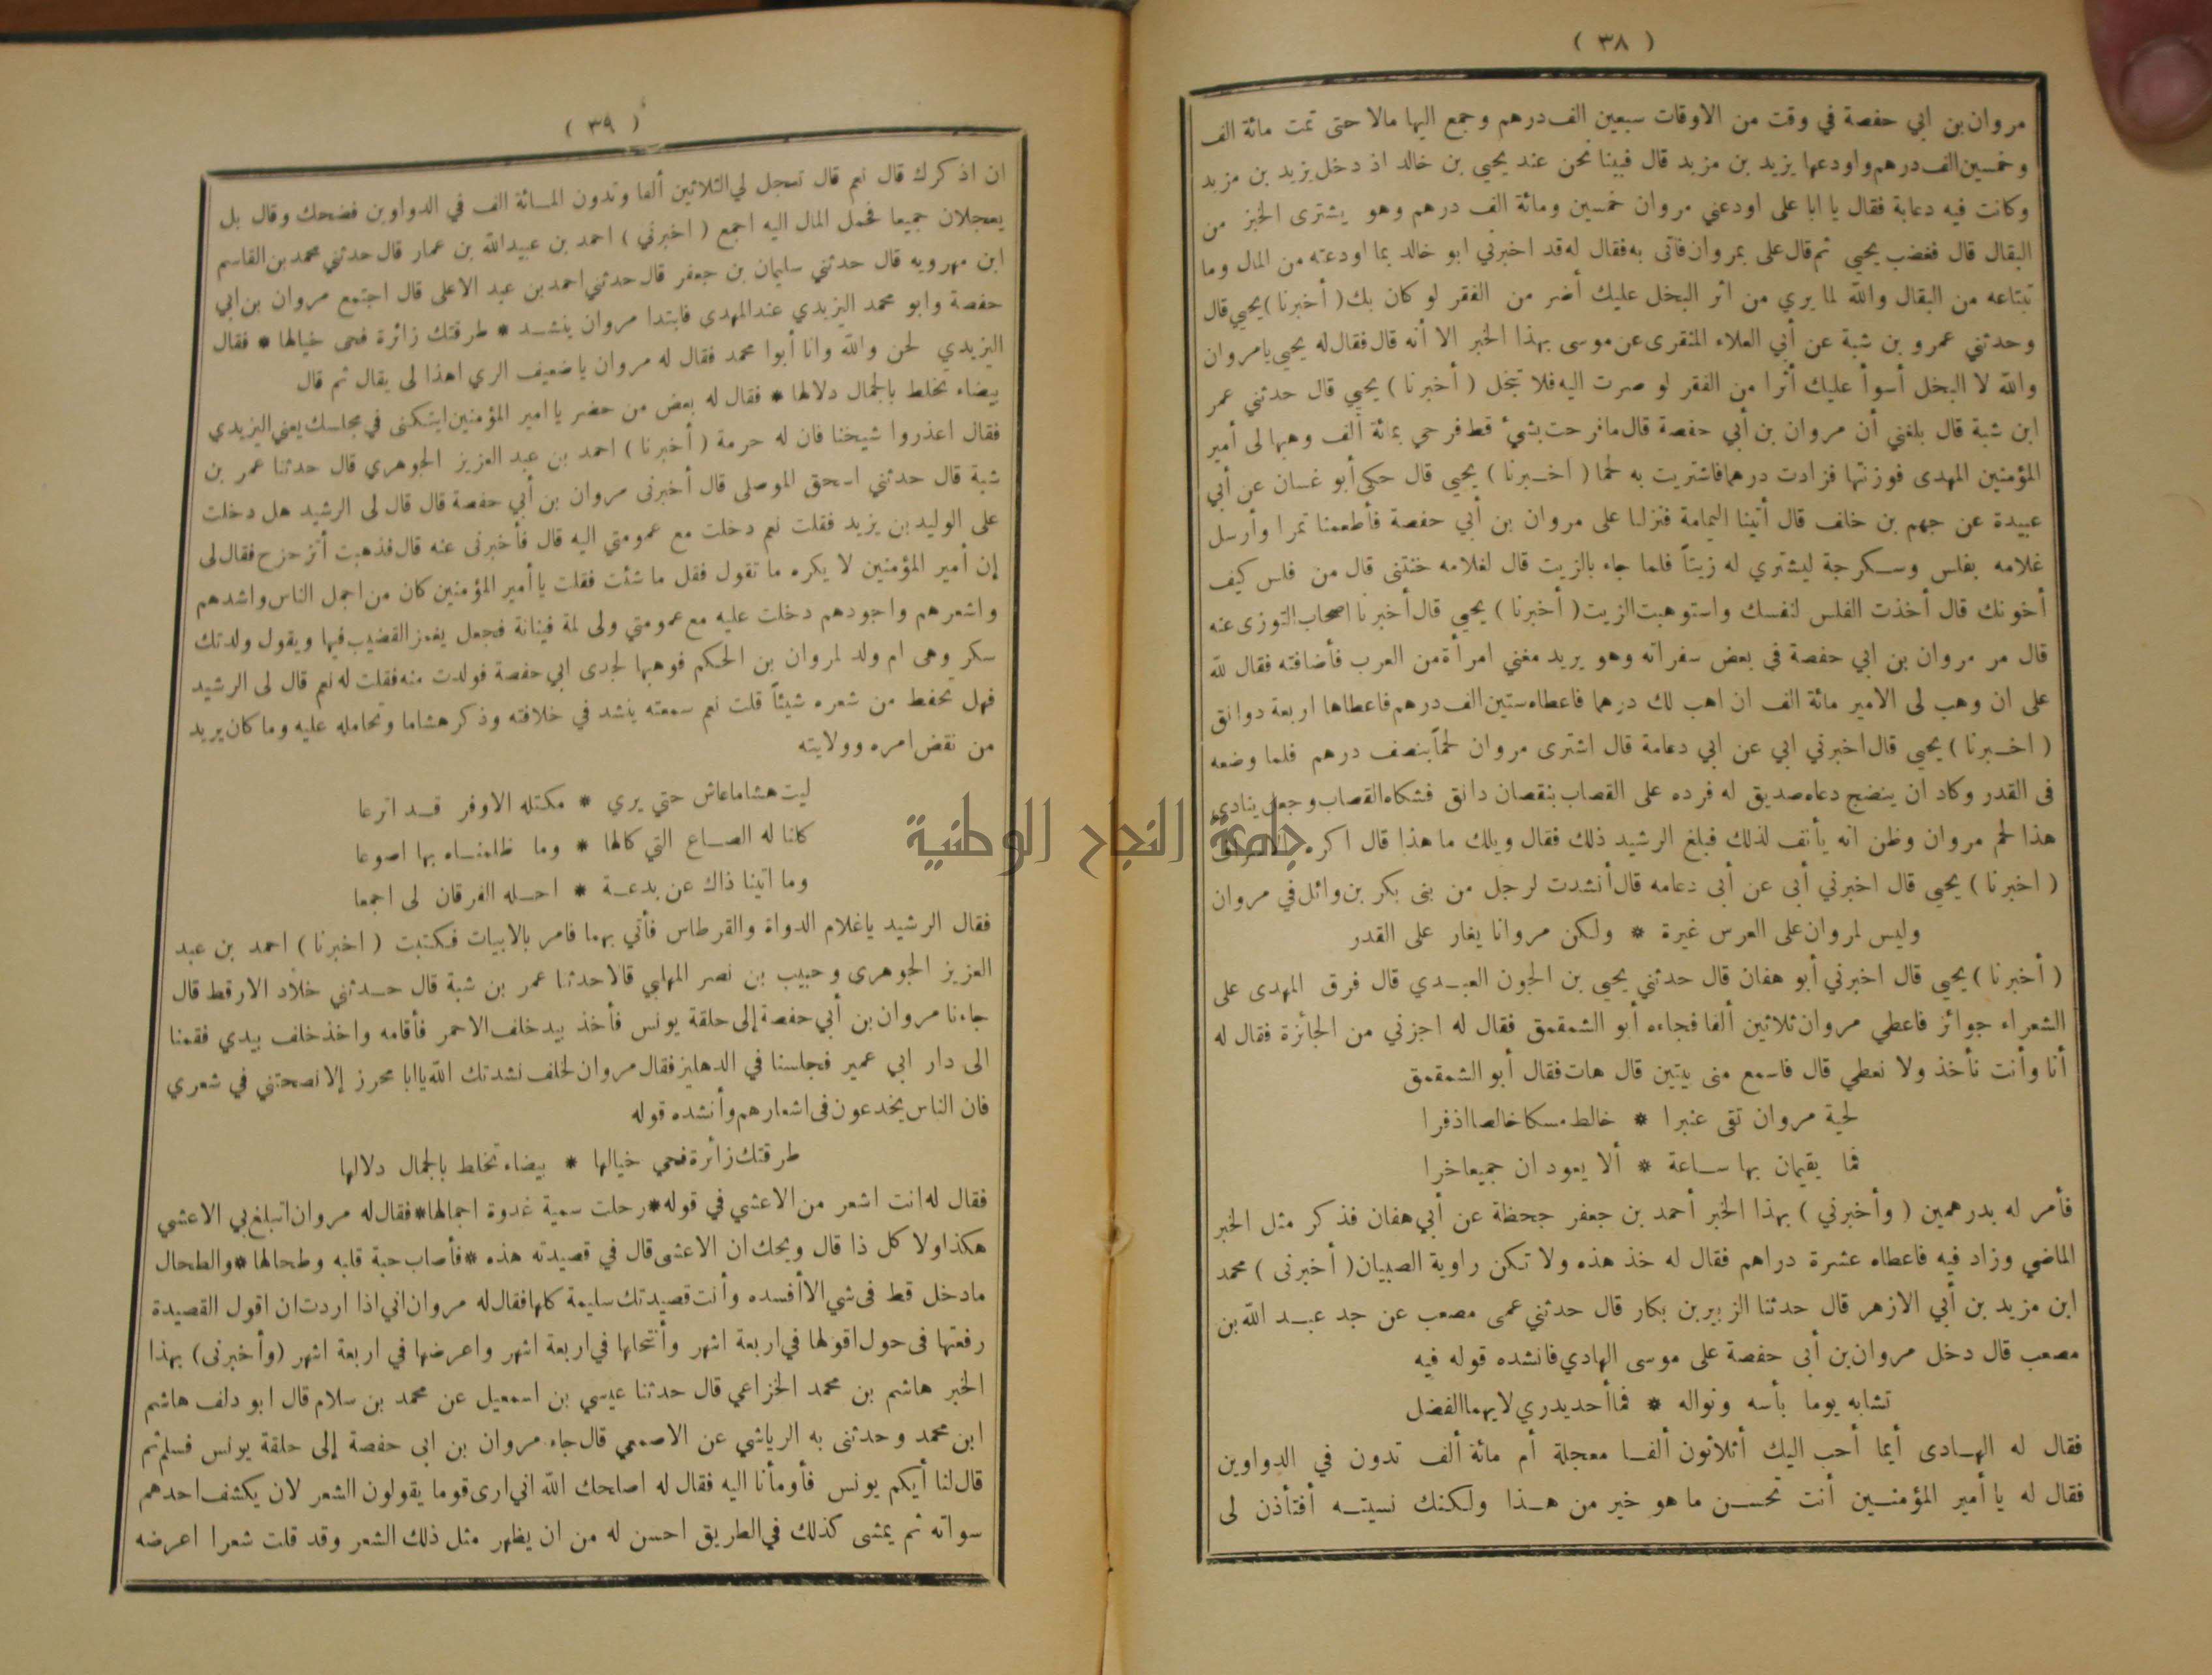 ( ٣٨ )
مروان بن ابي حفصة في وقت من الاوقات سبعين الف درهم وجمع اليها مالا حتى تمت مائة الف
وخمسين الف درهم واودعها يزيد بن مزيد قال فبينا نحن عند يحيي بن خالد اذ دخل يزيد بن مزيد
وكانت فيه دعابة فقال يا ابا على اودعني مروان خمسين ومائة الف درهم وهو يشترى الخبز من
البقال قال فغضب يحيي ثم قال على بمروان فأتى به فقال له قد اخبرني ابو خالد بما اودعته من المال وما
تبتاعه من البقال والله لما يري من اثر البخل عليك أضر من الفقر لو كان بك ( أخبرنا ) يحيي قال
وحدثني عمرو بن شبة عن أبي العلاء المنقرى عن موسى بهذا الخبر الا أنه قال فقال له يحيى يا مروان
والله لا البخل أسوأ عليك أثرا من الفقر لو صرت اليه فلا تبخل ( أخبرنا ) يحيي قال حدثني عمر
ابن شبة قال بلغني أن مروان بن أبي حفصة قال ما فرحت بشيء قط فرحي بمائة ألف وهبها لى أمير
المؤمنين المهدى فوزنتها فزادت درهما فاشتريت به لحما ( اخبرنا ) يحيي قال حكى أبو غسان عن أبي
عبيدة عن جهم بن خلف قال أتينا اليمامة فنزلنا على مروان بن أبي حفصة فأطعمنا تمرا وأرسل
غلامه بفلس وسكرجة ليشتري له زيتاً فلما جاء بالزيت قال لغلامه خنتنى قال من فلس كيف
أخونك قال أخذت الفلس لنفسك واستوهبت الزيت ( أخبرنا ) يحيي قال أخبرنا اصحاب التوزى عنه
قال مر مروان بن ابي حفصة في بعض سفراته وهو يريد مغني امرأة من العرب فأضافته فقال لله
على ان وهب لى الامير مائة الف ان اهب لك درهما فاعطاه ستين الف درهم فاعطاها اربعة دوانق
( اخبرنا ) يحيى قال اخبرني ابي عن ابي دعامة قال اشترى مروان لحماً بنصف درهم فلما وضعه
فى القدر وكاد ان ينضج دعاه صديق له فرده على القصاب بنقصان دانق فشكاه القصاب وجعل ينادي
هذا لحم مروان وظن انه يأنف لذلك فبلغ الرشيد ذلك فقال ويلك ما هذا قال اكره
( اخبرنا ) يحيي قال اخبرني أبى عن أبى دعامه قال أنشدت لرجل من بنى بكر بن وائل في مروان
وليس لمروان على العرس غيرة * ولكن مروانا يغار على القدر
( أخبرنا ) يحيي قال اخبرني أبو هفان قال حدثني يحيى بن الجون العبدي قال فرق المهدى على
الشعراء جوائز فاعطي مروان ثلاثين ألفا فجاءه أبو الشمقمق فقال له اجزني من الجائزة فقال له
أنا وأنت نأخذ ولا نعطي قال فاسمع منى بيتين قال هات فقال أبو الشمقمق
لحية مروان تقى عنبرا * خالط مسكا خالصا اذفرا
فما يقيمان بها ساعة * ألا يعودان جميعا خرا
فأمر له بدرهمين ( وأخبرني ) بهذا الخبر أحمد بن جعفر جحظة عن أبي هفان فذكر مثل الخبر
الماضي وزاد فيه فاعطاه عشرة دراهم فقال له خذ هذه ولا تكن راوية الصبيان ( أخبرنى ) محمد
ابن مزيد بن أبي الازهر قال حدثنا الزبير بن بكار قال حدثني عمى مصعب عن جد عبد الله بن
مصعب قال دخل مروان بن أبى حفصة على موسى الهادي فانشده قوله فيه
تشابه يوما بأسه ونواله * فما أحد يدري لايهما الفضل
فقال له الهادى أيما أحب اليك أثلاثون ألفا معجلة أم مائة ألف تدون في الدواوين
فقال له يا أمير المؤمنين أنت تحسن ما هو خير من هذا ولكنك نسيته أفتأذن لى
( ٣٩ )
ان اذكرك قال نعم قال تعجل لي الثلاثين ألفا وتدون المائة الف في الدواوين فضحك وقال بل
يعجلان جميعا فحمل المال اليه اجمع ( اخبرني ) احمد بن عبيدالله بن عمار قال حدثني محمد بن القاسم
ابن مهرويه قال حدثني سليمان بن جعفر قال حدثني احمد بن عبد الاعلى قال اجتمع مروان بن ابي
حفصة وابو محمد اليزيدي عند المهدى فابتدا مروان ينشد * طرقتك زائرة فحى خيالها * فقال
اليزيدي لحن والله وانا أبوا محمد فقال له مروان يا ضعيف الري اهذا لى يقال ثم قال
بيضاء تخلط بالجمال دلالها * فقال له بعض من حضر يا امير المؤمنين ايتكنى في مجلسك يعني اليزيدي
فقال اعذروا شيخنا فان له حرمة ( أخبرنا ) احمد بن عبد العزيز الجوهري قال حدثنا عمر بن
شبة قال حدثني اسحق الموصلى قال أخبرنى مروان بن أبي حفصة قال قال لى الرشيد هل دخلت
على الوليد بن يزيد فقلت نعم دخلت مع عمومتي اليه قال فأخبرنى عنه قال فذهبت أتزحزح فقال لى
إن أمير المؤمنين لا يكره ما تقول فقل ما شئت فقلت يا أمير المؤمنين كان من اجمل الناس واشدهم
واشعرهم واجودهم دخلت عليه مع عمومتي ولى لمة فينانة فجعل يغمز القضيب فيها ويقول ولدتك
سكر وهى ام ولد لمروان بن الحكم فوهبها لجدى ابي حفصة فولدت منه فقلت له نعم قال لى الرشيد
فهل تحفظ من شعره شيئاً قلت نعم سمعته ينشد في خلافته وذكر هشاما وتحامله عليه وما كان يريد
من نقض امره وولايته
ليت هشاما عاش حتي يري * مكتله الاوفر قد اترعا
كلنا له الصاع التي كالها * وما ظلمناه بها اصوعا
وما اتينا ذاك عن بدعة * احله الفرقان لى اجمعا
فقال الرشيد يا غلام الدواة والقرطاس فأتي بهما فامر بالابيات فكتبت ( اخبرنا ) احمد بن عبد
العزيز الجوهرى وحبيب بن نصر المهلبي قالا حدثنا عمر بن شبة قال حدثني خلاد الارقط قال
جاءنا مروان بن أبي حفصة إلى حلقة يونس فأخذ بيد خلف الاحمر فأقامه واخذ خلف بيدي فقمنا
الى دار ابي عمير فجلسنا في الدهليز فقال مروان لخلف نشدتك الله يا ابا محرز إلا نصحتني في شعري
فان الناس يخدعون فى اشعارهم وأنشده قوله
طرقتك زائرة فحي خيالها * بيضاء تخلط بالجمال دلالها
فقال له انت اشعر من الاعشي في قوله * رحلت سمية غدوة اجمالها * فقال له مروان اتبلغ بي الاعشي
هكذا ولا كل ذا قال ويحك ان الاعشى قال في قصيدته هذه * فأصاب حبة قلبه وطحالها * والطحال
ما دخل قط فى شي الا أفسده وأنت قصيدتك سليمة كلها فقال له مروان اني اذا اردت ان اقول القصيدة
رفعتها فى حول اقولها في اربعة اشهر وأنتحلها في اربعة اشهر واعرضها في اربعة اشهر (وأخبرنى) بهذا
الخبر هاشم بن محمد الخزاعي قال حدثنا عيسي بن اسمعيل عن محمد بن سلام قال ابو دلف هاشم
ابن محمد وحدثنى به الرياشي عن الاصمعي قال جاء مروان بن ابى حفصة إلى حلقة يونس فسلم ثم
قال لنا أيكم يونس فأومأنا اليه فقال له اصلحك الله اني ارى قوما يقولون الشعر لان يكشف احدهم
سواته ثم يمشى كذلك في الطريق احسن له من ان يظهر مثل ذلك الشعر وقد قلت شعرا اعرضه
جامعة النجاح الوطنية